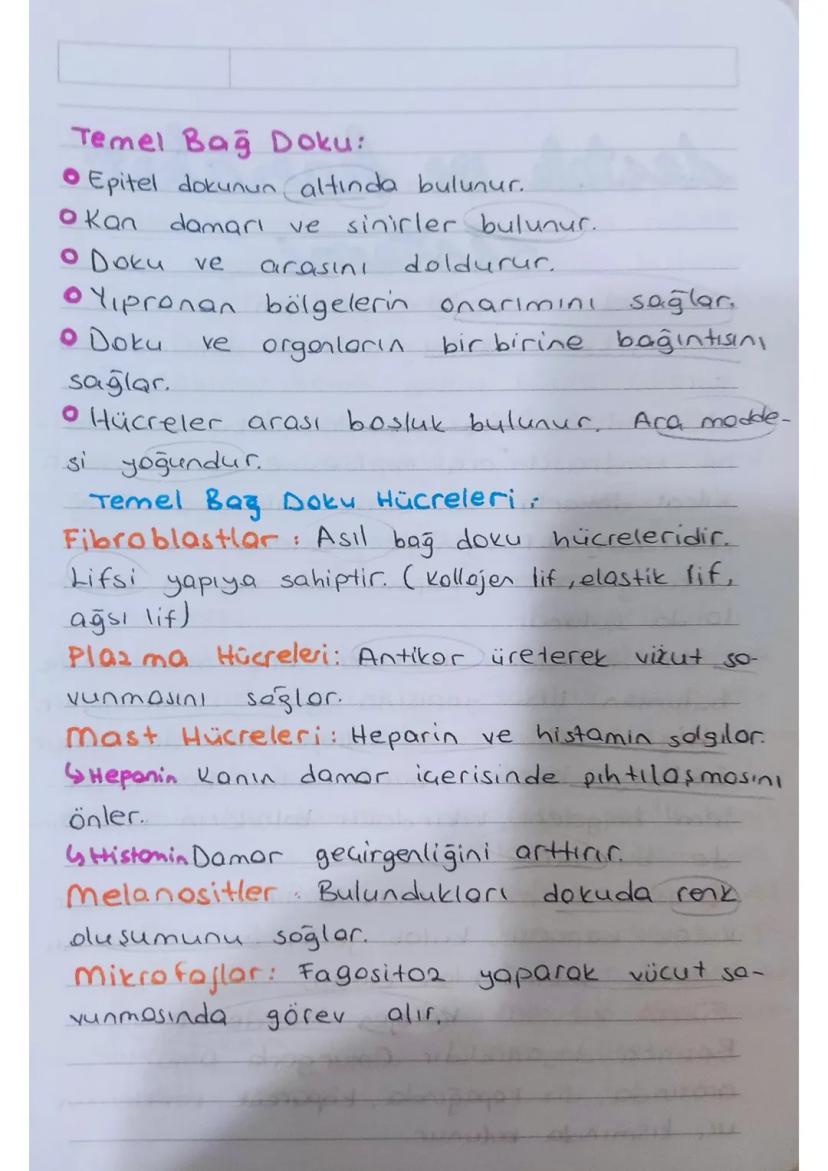 Temel Bağ Doku:
Epitel dokunun altında bulunur.
Kan damarı ve sinirler bulunur.
Doku ve arasını doldurur.
Yıpronan bölgelerin onarımını sağlar.
Doku ve organların bir birine bağıntısını
sağlar.
Hücreler arası boşluk bulunur. Ara madde-
si yoğundur.
Temel Bağ Doku Hücreleri:
Fibroblastlar: Asıl bağ doku hücreleridir.
Lifsi yapıya sahiptir. (Kollajen lif, elastik lif,
ağsı lif)
Plazma Hücreleri: Antikor üreterek vücut sa-
vunmasını sağlar.
Mast Hücreleri: Heparin ve histamin salgılar.
↳Heparin Kanın damar içerisinde pıhtılaşmasını
önler.
↳Histamin Damar geçirgenliğini arttırır.
Melanositler: Bulundukları dokuda renk
oluşumunu sağlar.
Mikrofajlar: Fagositoz yaparak vücut sa-
vunmasında görev alır.